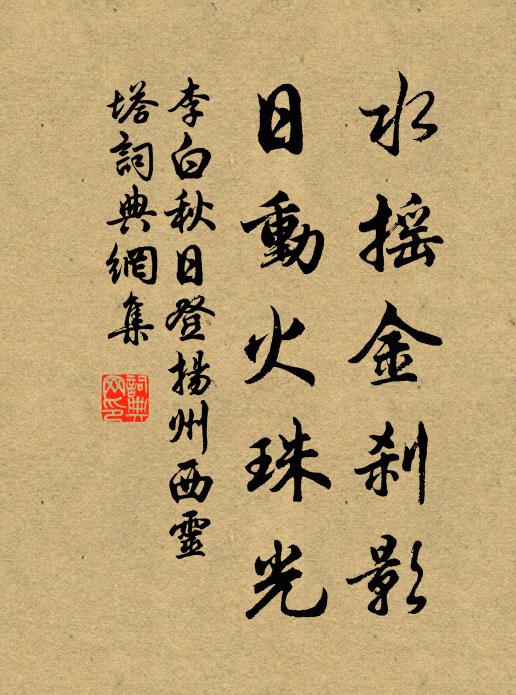 水摇金刹影
日動火珠光
李白秋日登揚州西靈
塔詞典網集
詞典
网印